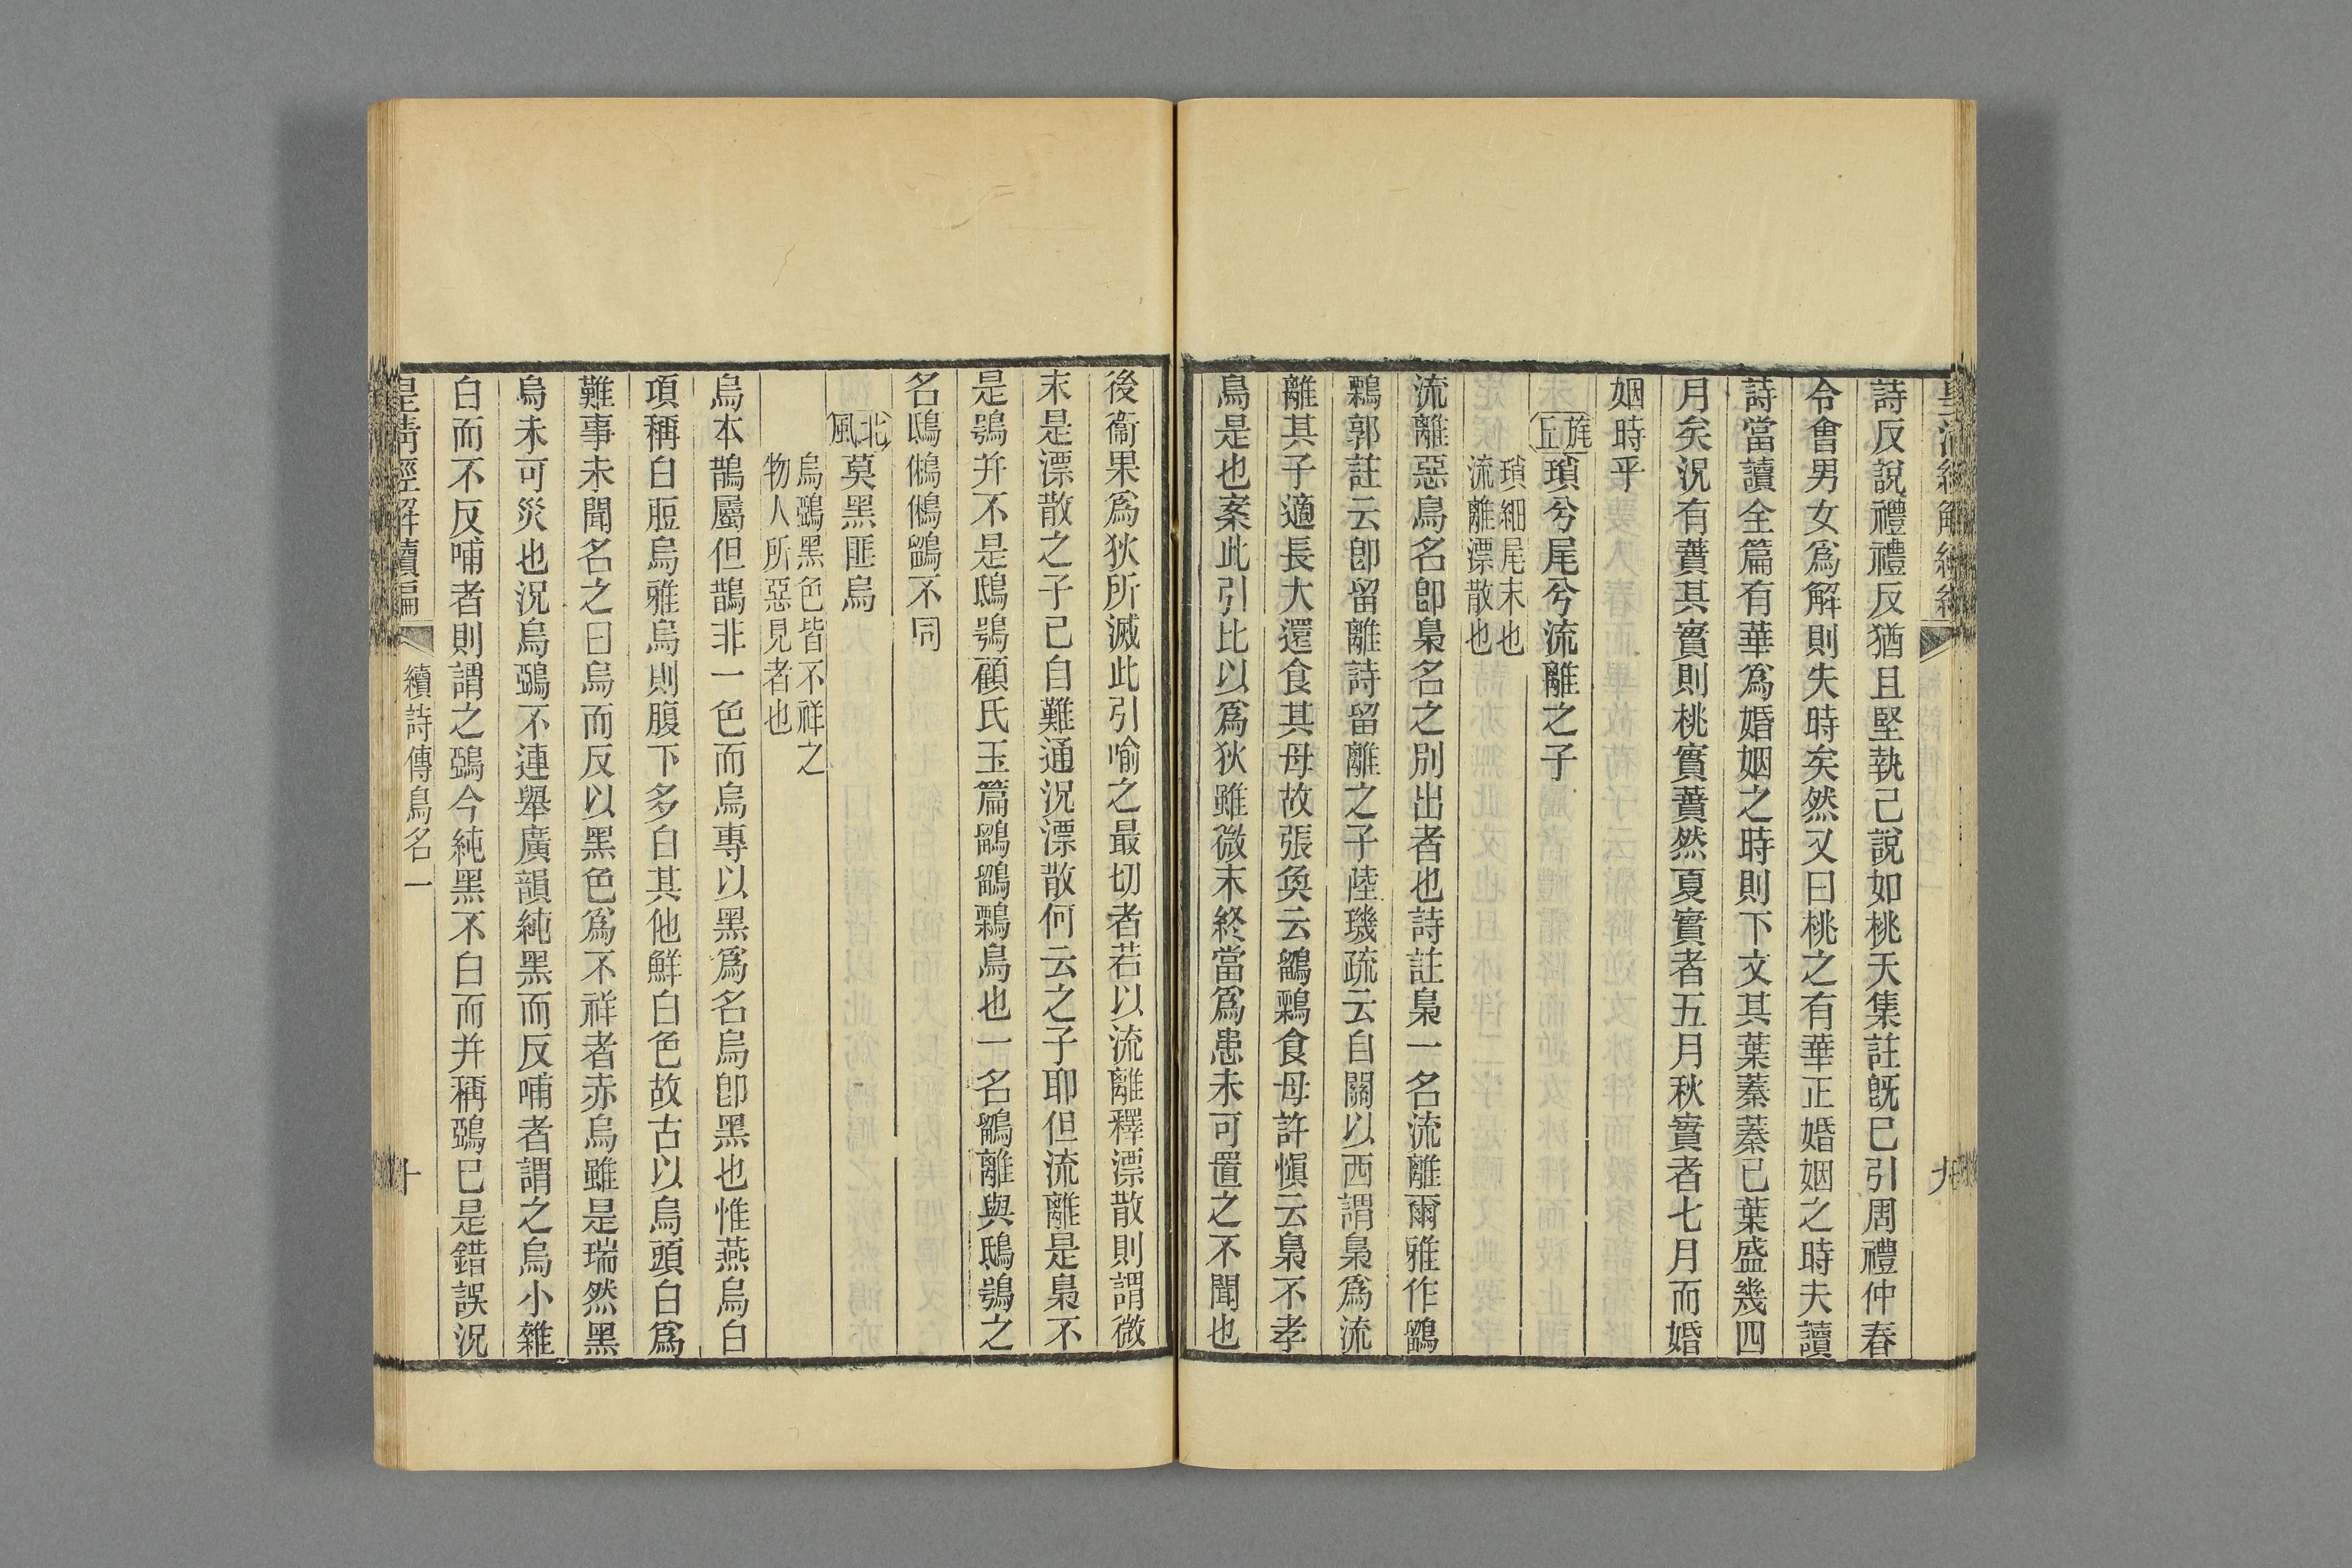 詩反說禮禮反猶且堅執己說如桃夭集註旣已引周禮仲春
令會男女爲解則失時矣然又曰桃之有華正婚姻之時夫讀
詩當讀全篇有華爲婚姻之時則下文其葉蓁蓁已葉盛幾四
月矣況有蕡其實則桃實蕡然夏實者五月秋實者七月而婚
姻時乎
旄丘 瑣兮尾兮流離之子
瑣細尾末也
流離漂散也
流離惡鳥名卽梟名之別出者也詩註梟一名流離爾雅作鶹
鷅郭註云卽留離詩留離之子陸璣疏云自關以西謂梟爲流
離其子適長大還食其母故張奐云鶹鷅食母許愼云梟不孝
鳥是也案此引比以爲狄雖微末終當爲患未可置之不聞也
後衞果爲狄所滅此引喻之最切者若以流離釋漂散則謂微
末是漂散之子已自難通況漂散何云之子耶但流離是梟不
是鴞并不是鴟鴞顧氏玉篇鶹鶹鷅鳥也一名鶹離與鴟鴞之
名鴟鵂鵂鶹不同
北風 莫黑匪烏
烏鵶黑色皆不祥之
物人所惡見者也
烏本鵲屬但鵲非一色而烏專以黑爲名烏卽黑也惟燕烏白
項稱白脰烏雅烏則腹下多白其他鮮白色故古以烏頭白爲
難事未聞名之曰烏而反以黑色爲不祥者赤烏雖是瑞然黑
烏未可災也況烏鵶不連舉廣韻純黑而反哺者謂之烏小雜
白而不反哺者則謂之鵶今純黑不白而并稱鵶已是錯誤況
皇淸經解續編
續詩傳鳥名一
十
九